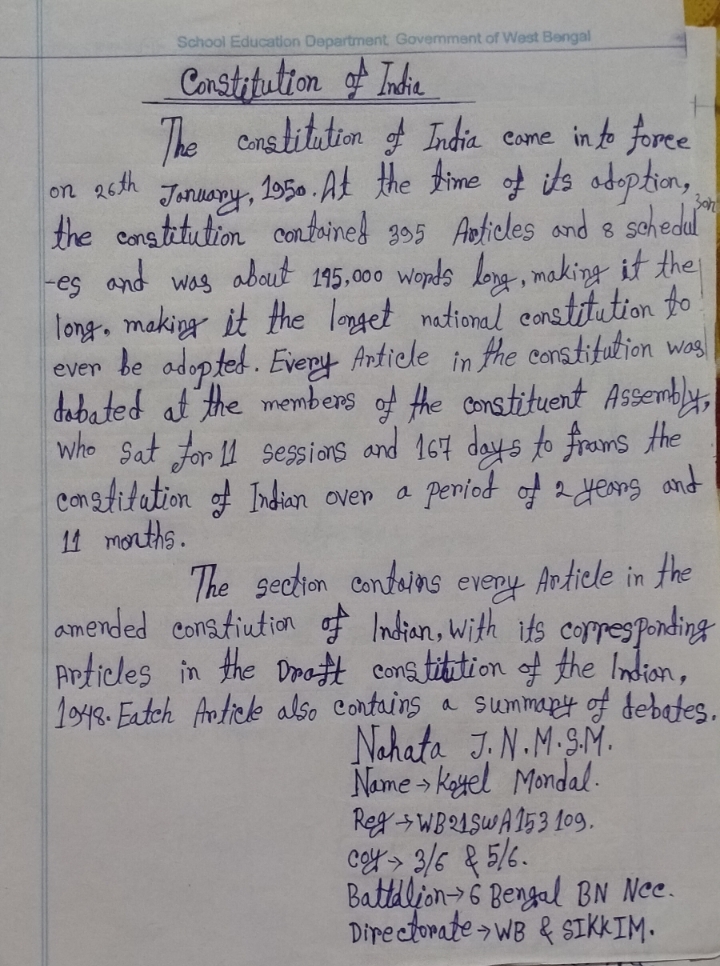 School Education Department, Government of West Bengal
Constitution of India
The constitution of India came in to force
on 26th January, 1950. At the time of its adoption,
the constitution contained 395 Articles and 8 schedul
-es and was about 145,000 words long, making it the
long. making it the longet national constitution to
ever be adopted. Every Article in the constitution was
dabated at the members of the constituent Assembly,
who sat for 11 sessions and 167 days to frams the
constitution of Indian over a period of 2 years and
11 months.
The section contains every Article in the
amended constiution of Indian, with its corresponding
Articles in the Draft constitution of the Indian,
1948. Eatch Article also contains a summary of debates.
Nahata J.N.M.S.M.
Name → Koyel Mondal.
Reg → WB21SWA153109.
coy → 3/6 & 5/6.
Battalion → 6 Bengal BN Ncc.
Directorate → WB & SIKKIM.